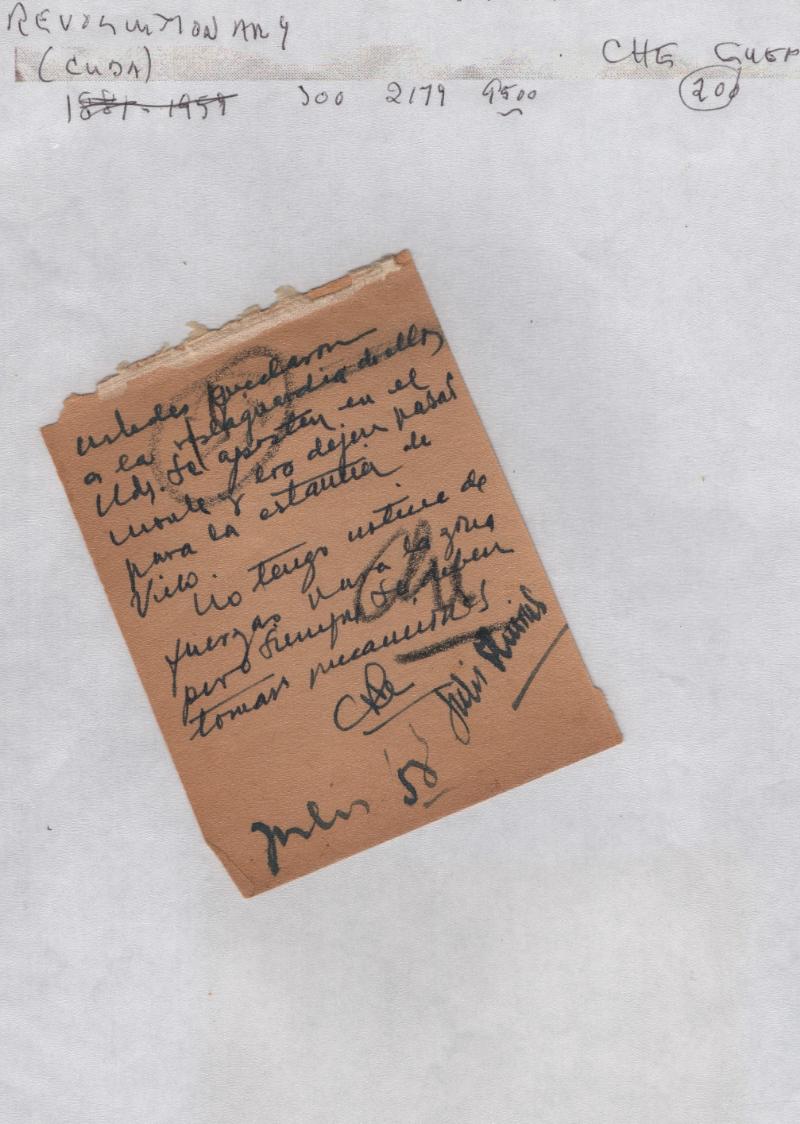 REVOLUTIONARY
(CUBA)
CHE GUER
1881-1959 300 2179 9500
200
ustedes quedaron
a la retaguardia de ellos
Uds. se aposten en el
monte y no dejen pasar
para la estancia de
Vico.
No tengo noticia de
fuerzas para la zona
pero siempre se deben
tomar precauciones
Che
Julio '58